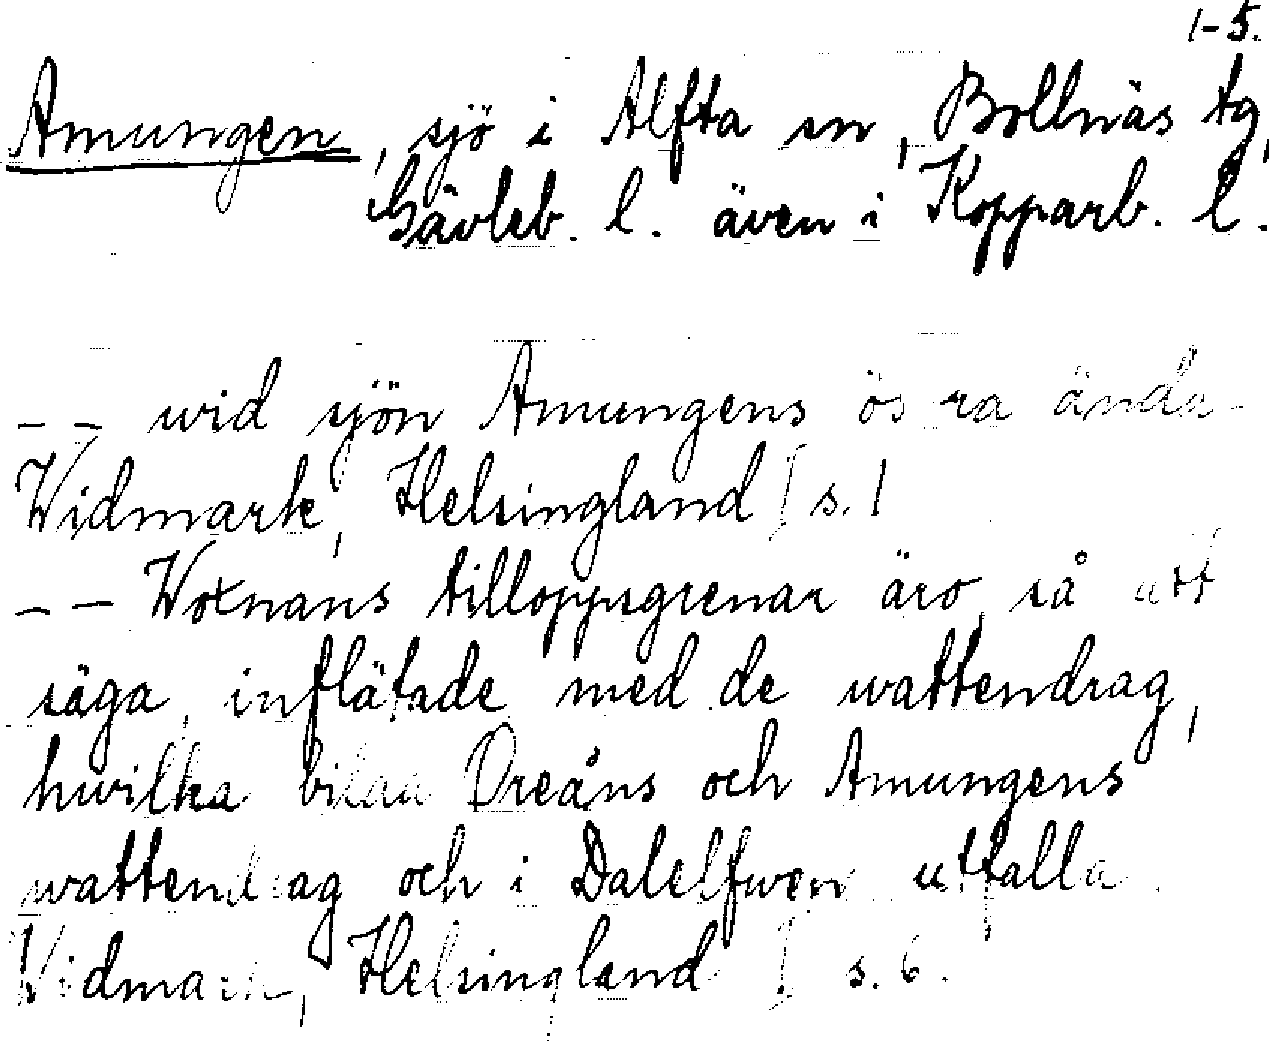 1-5.
Amungen, sjö i Alfta sn, Bollnäs tg,
Gävleb. l. även i Kopparb. l.
-- wid sjön Amungens östra ända -
Widmark, Helsingland I s. 1
-- Woxnans tilloppsgrenar äro, så att
säga, inflätade med de wattendrag,
hwilka bilda Oreåns och Amungens
wattendrag och i Dalelfwen utfalla.
Widmark, Helsingland I s. 6.